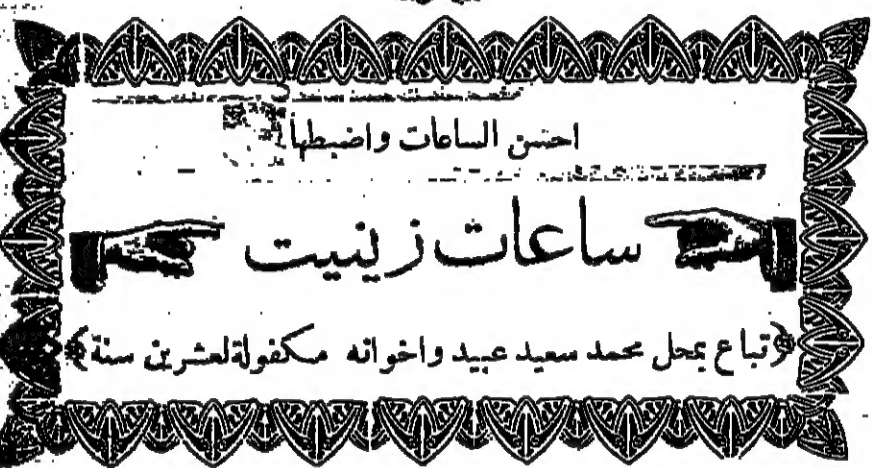 احسن الساعات واضبطها
ساعات زينيت
﴿تباع بمحل محمد سعيد عبيد واخوانه مكفولة لعشرين سنة﴾